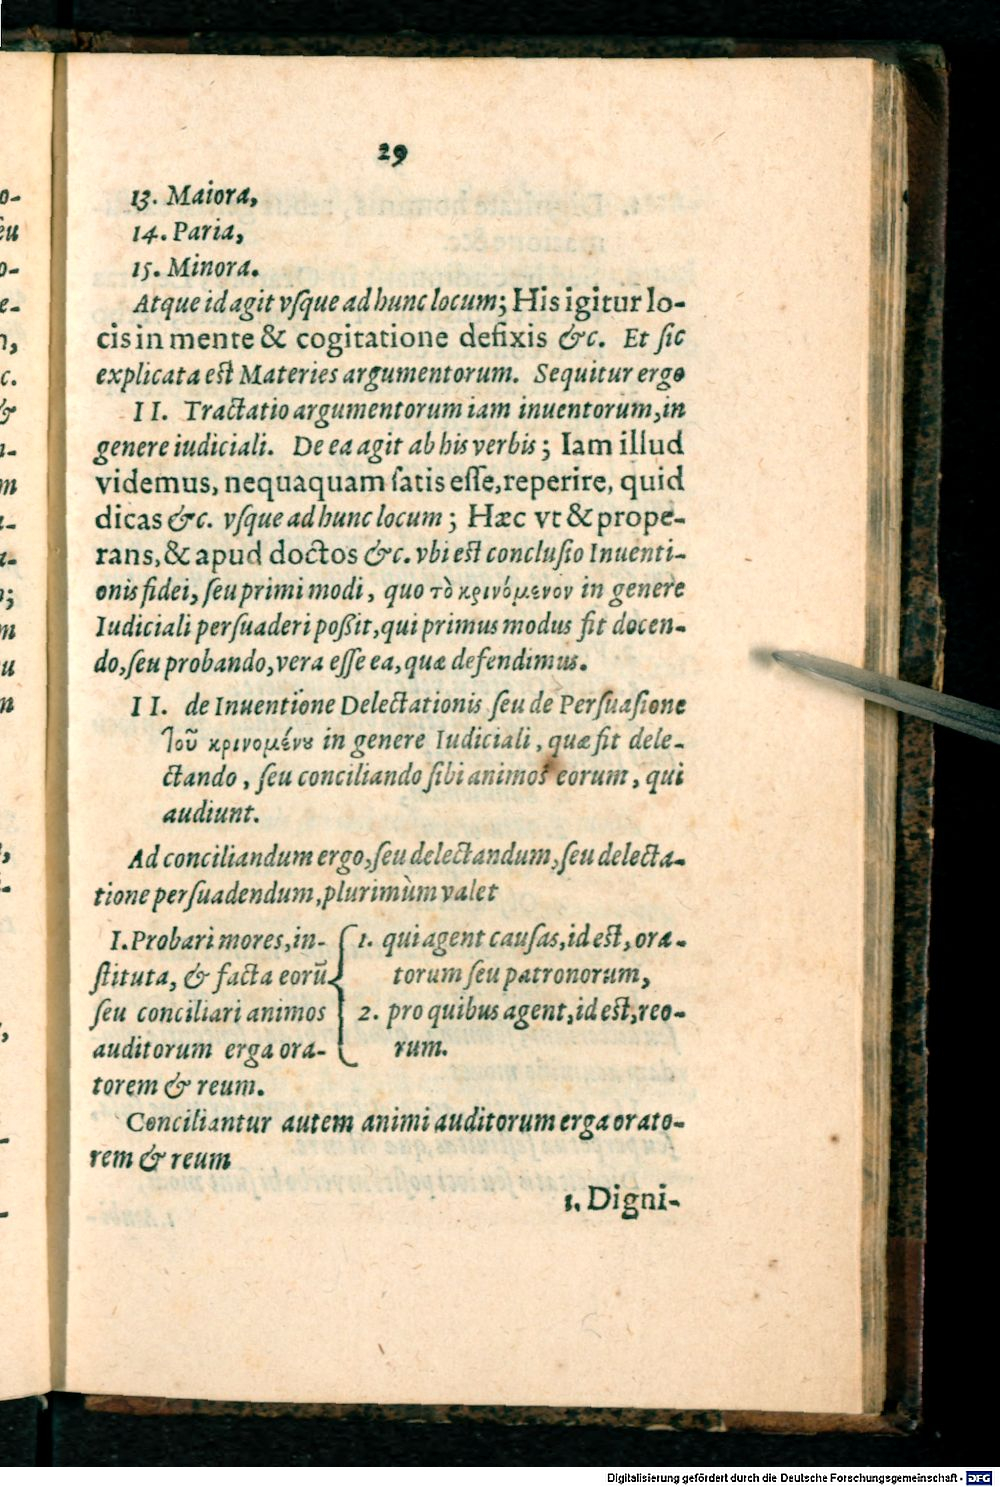 29
13. Maiora,
14. Paria,
15. Minora.
Atque id agit vſque ad hunc locum; His igitur lo-
cis in mente & cogitatione defixis &c. Et ſic
explicata eſt Materies argumentorum. Sequitur ergo
II. Tractatio argumentorum iam inuentorum, in
genere iudiciali. De ea agit ab his verbis; Iam illud
videmus, nequaquam ſatis eſſe, reperire, quid
dicas &c. vſque ad hunc locum; Hæc vt & prope-
rans, & apud doctos &c. vbi eſt concluſio Inuenti-
onis fidei, ſeu primi modi, quo τὸ κρινόμενον in genere
Iudiciali perſuaderi poßit, qui primus modus fit docen-
do, ſeu probando, vera eſſe ea, quæ defendimus.
II. de Inuentione Delectationis ſeu de Perſuaſione
τοῦ κρινομένου in genere Iudiciali, quæ fit dele-
ctando, ſeu conciliando ſibi animos eorum, qui
audiunt.
Ad conciliandum ergo, ſeu delectandum, ſeu delecta-
tione perſuadendum, plurimùm valet
I. Probari mores, in-
ſtituta, & facta eorū
ſeu conciliari animos
auditorum erga ora-
torem & reum.
1. qui agent cauſas, id eſt, ora-
torum ſeu patronorum,
2. pro quibus agent, id eſt, reo-
rum.
Conciliantur autem animi auditorum erga orato-
rem & reum
1. Digni-
o-
ſeu
o-
e-
n,
c.
&
n-
m
n;
m
u
n
Digitalisierung gefördert durch die Deutsche Forschungsgemeinschaft - DFG